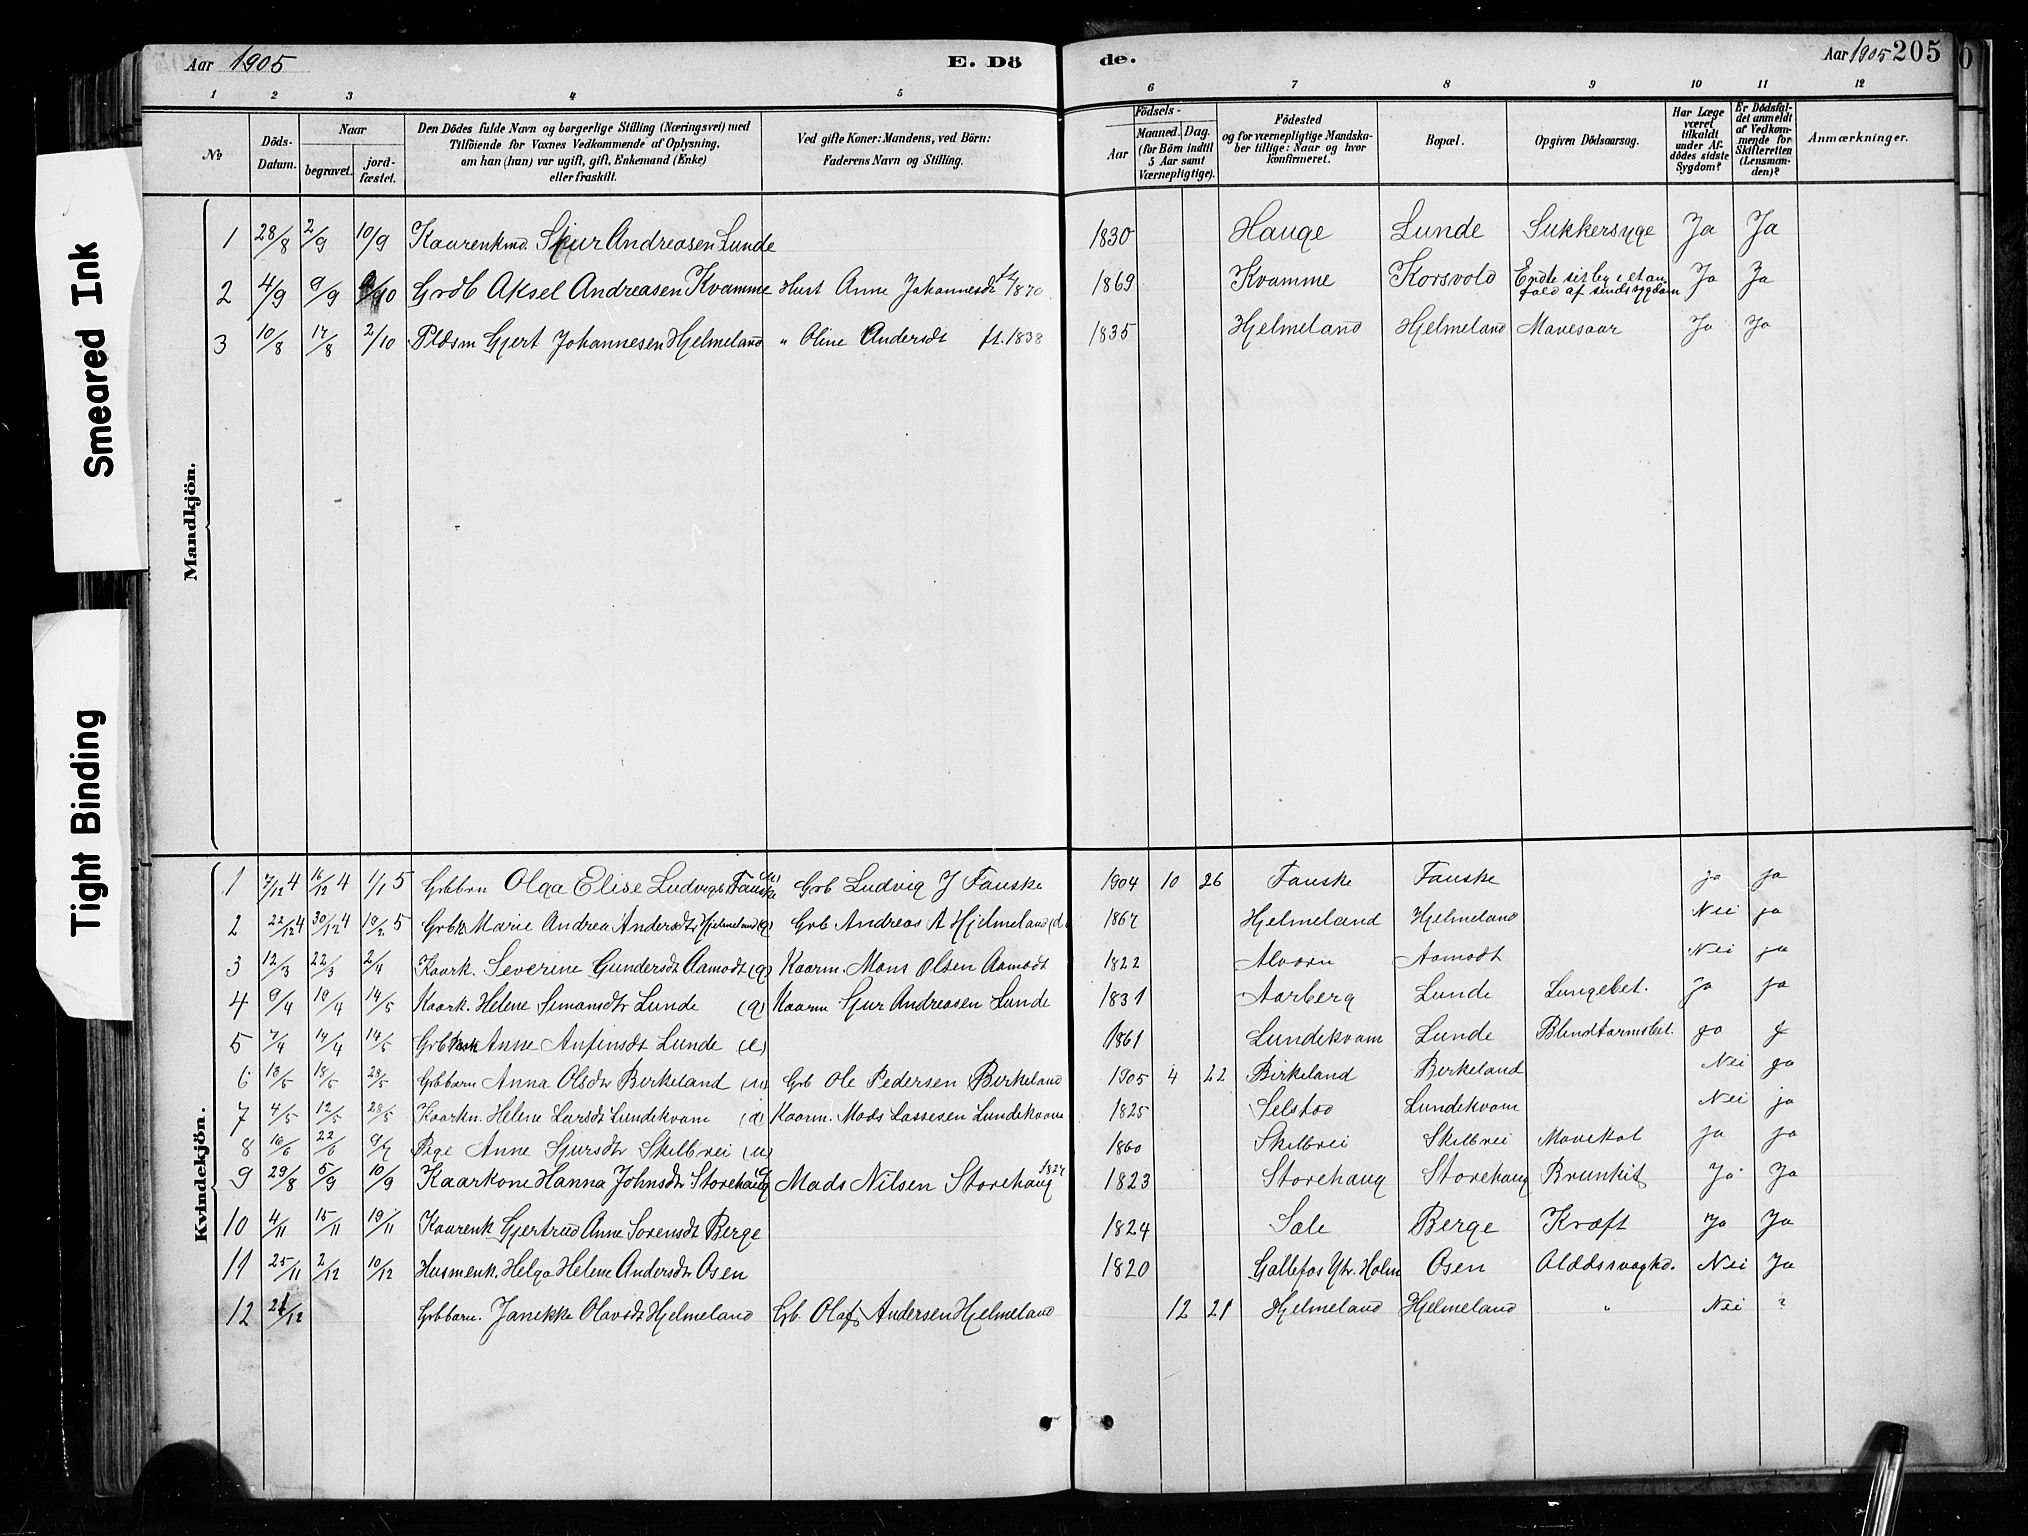 Smeared Ink
Tight Binding
Aar 1905 E. Dö de. Aar 1905 205
1 2 3 4 5 6 7 8 9 10 11 12
№
Döds-Datum.
Naar
begravet.
jordfæstet.
Den Dödes fulde Navn og borgerlige Stilling (Næringsvei) med
Tilföiende for Voxnes Vedkommende af Oplysning,
om han (hun) var ugift, gift, Enkemand (Enke)
eller fraskilt.
Ved gifte Koner: Mandens, ved Börn:
Faderens Navn og Stilling.
Födsels-
Aar
Maaned. Dag.
(for Börn indtil
5 Aar samt
Værnepligtige).
Födested
og for værnepligtige Mandskaber tillige: Naar og hvor
konfirmeret.
Bopæl.
Opgiven Dödsaarsag.
Har Læge
været
tilkaldt
under Afdödes sidste
Sygdom?
Er Dödsfaldet anmeldt
af Vedkommende for
Skifteretten
(Lensmanden)?
Anmærkninger.
Mandkjön.
1 28/8 2/9 10/9 Kaarenkmd. Sjur Andreasen Lunde 1830 Hauge Lunde Sukkersyge Ja Ja
2 4/9 9/9 Grdb Aksel Andreasen Kvamme Hust Anne Johannesdt ft 1870 1869 Kvamme Korsvold Endte sit liv i et anfald af sindssygdom Ja Ja
3 10/8 17/8 2/10 Pldsm Gjert Johannesen Hjelmeland " Oline Andersdt ft. 1838 1835 Hjelmeland Hjelmeland Mavesaar Ja Ja
Kvindekjön.
1 7/12 4 16/12 4 1/1 5 Grbbrn Olga Elise Ludvigsdt Fauske Grb Ludvig J Fauske 1904 10 26 Fauske Fauske ja ja
2 22/12 4 30/12 4 19/2 5 Grbk Marie Andrea Andersdtr Hjelmeland (g) Grb Andreas A Hjelmeland 1867 Hjelmeland Hjelmeland Nei ja
3 12/3 22/3 2/4 Kaark. Severine Gundersdt Aamodt (g) Kaarm. Mons Olsen Aamodt 1822 Alvorn Aamodt Nei ja
4 9/4 19/4 14/5 Kaark. Helene Simonsdtr Lunde (g) Kaarm Sjur Andreasen Lunde 1831 Aarberg Lunde Lungebet. Ja ja
5 7/4 14/4 14/5 Anne Anfinsdt Lunde (e) 1861 Lundekvam Lunde Blindtarmsbet. ja j
6 13/5 18/5 28/5 Grbbarn Anna Olsdtr Birkeland (u) Grb Ole Pedersen Birkeland 1905 4 22 Birkeland Birkeland Nei ja
7 4/5 12/5 28/5 Kaarkn. Helene Larsdt Lundekvam (g) Kaarm. Mads Lassesen Lundekvam 1825 Selstad Lundekvam Nei ja
8 16/6 22/6 9/7 Pige Anne Sjursdtr Skilbrei (u) 1860 Skilbrei Skilbrei Mavekat ja ja
9 29/8 5/9 10/9 Kaarkone Hanna Johnsdtr Storehaug Mads Nilsen Storehaug 1827 1823 Storehaug Storehaug Brunkit Ja Ja
10 4/11 15/11 19/11 Kaarenk Gjertrud Anne Sorensdt Berge 1824 Sæle Berge Kræft Ja Ja
11 25/11 2/12 10/12 Husmenk. Helga Helene Andersdtr Osen 1820 Gallefos Ytr. Holm Osen Alddsvaghd. Nei Ja
12 21/12 Grbbarn. Janikke Olavsdt Hjelmeland Grb. Olaf Andersen Hjelmeland 12 21 Hjelmeland Hjelmeland " Nei ?